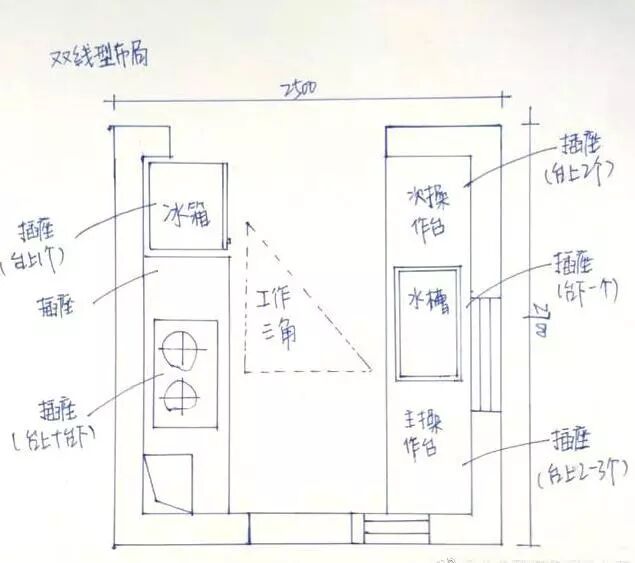 双线型布局
2500
插座
(台上2个)
冰箱
次操
作台
插座
(台上1个)
插座
(台下一个)
工作
三角
水槽
插座
2700
插座
(台上+台下)
主操
作台
插座
(台上2-3个)